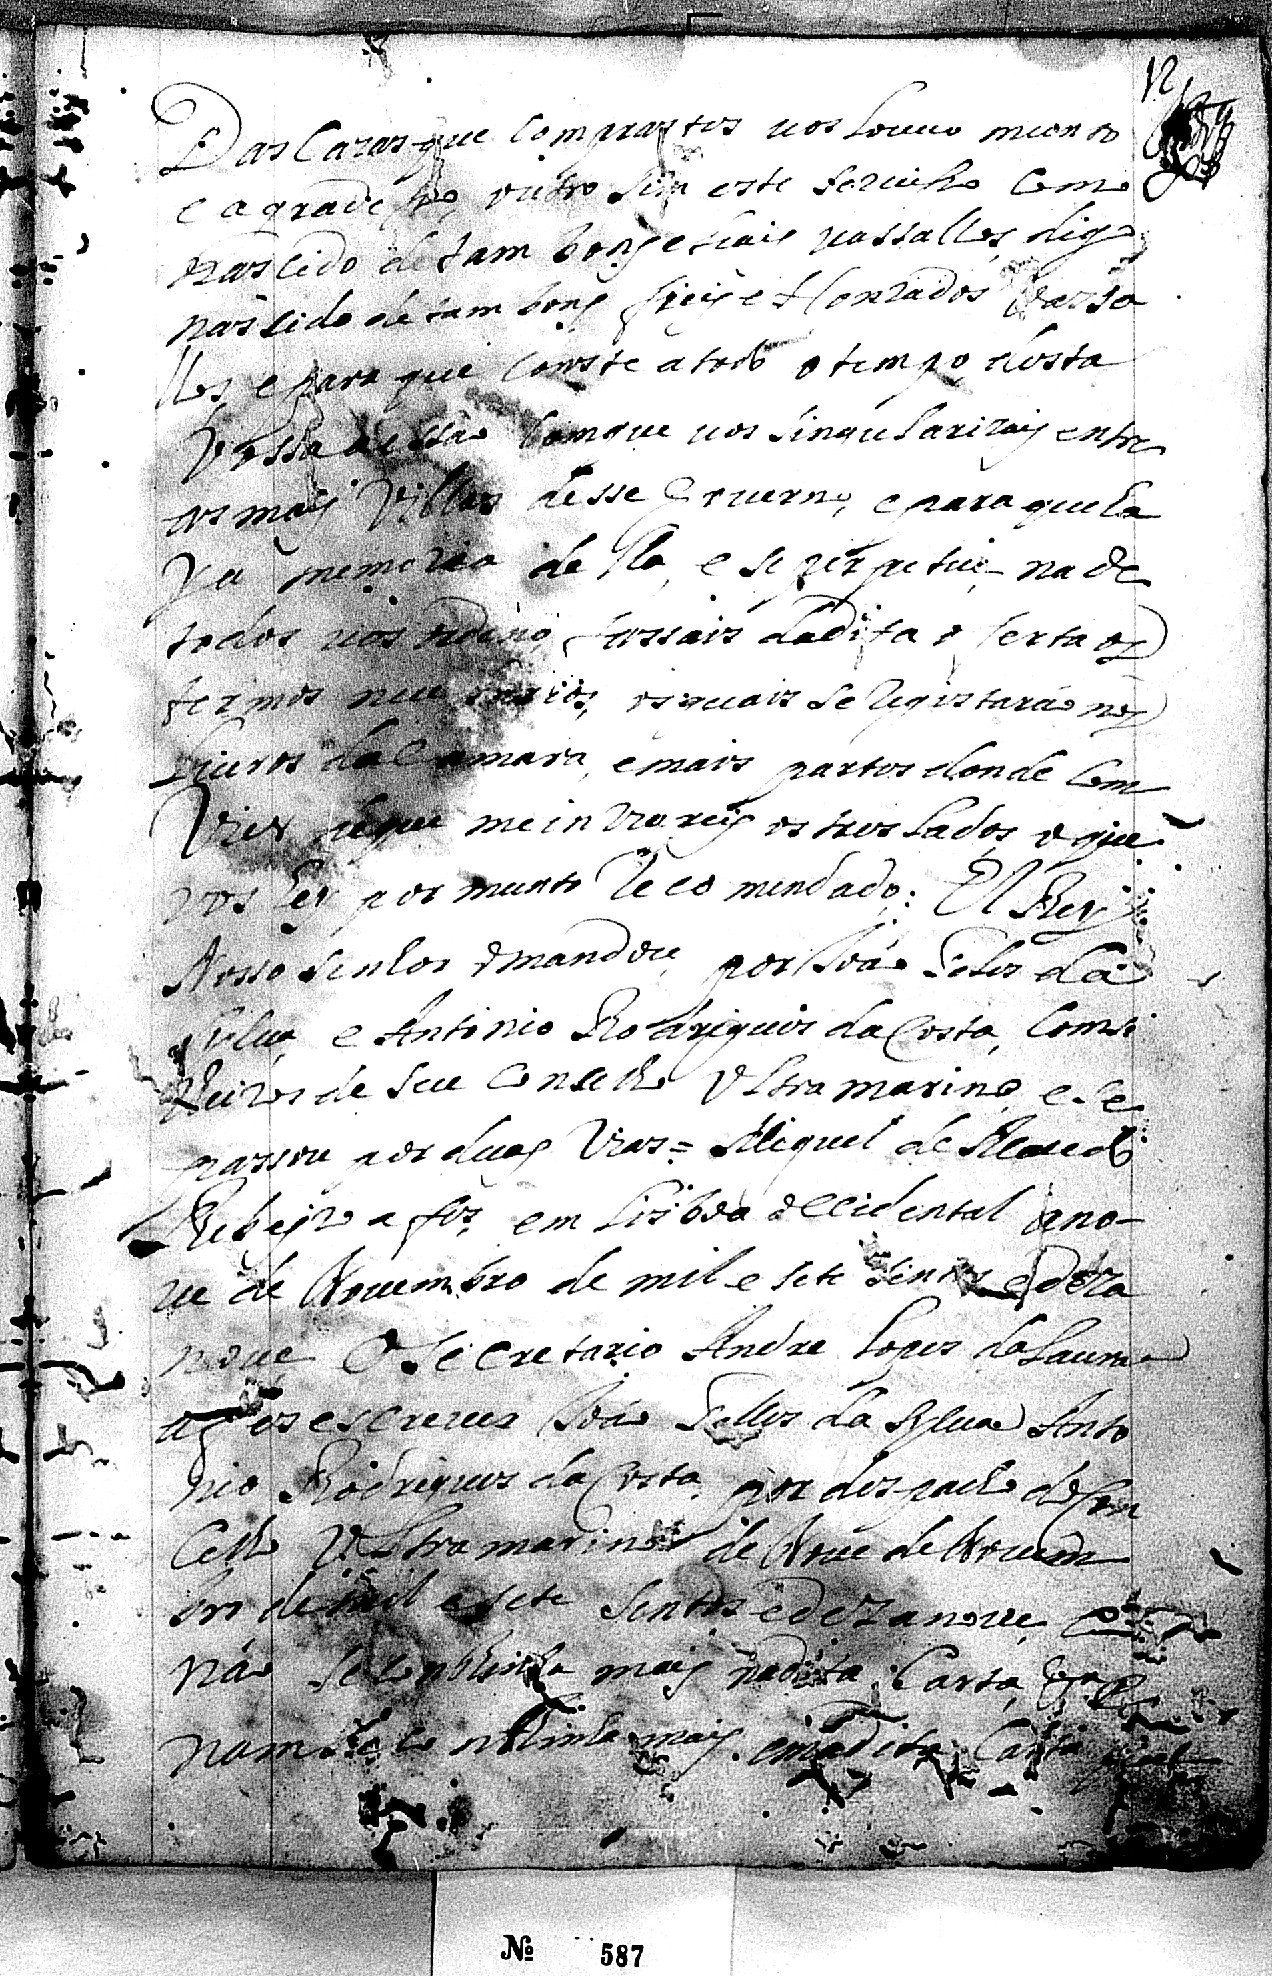 12
Das Cazas que Comprastes vos Louvo munto
e agradesso, outro sim este servicho Como
Nascido de tam bons e leais vassallos, digo
nascido de tam bons fieis e Honrados Vassa
llos, e para que Conste a todo o tempo desta
Vossa acsão Com que vos singularizais entre
os mais Villas desse Governo, e para que ha
ya memoria della, e se perpetue na de
todos vos ordeno fassais da dita o ferta os
termos nececarios, os quais se registarão nos
Liuros da Camara, e mais partes donde Com
Vier de que me inviareis os treslados, o que
vos Hey por munto Recomendado: El Rey
Nosso Senhor o mandou por João Teles da
Sylva, e Antonio Rodrigues da Costa, Conse
lheiros de seu Conselho Ultramarino, e se
passou por duas Vias = Miguel de Macedo
Ribeyro a fes, em Lisboa occidental a no-
ve de Novembro de mil e sete sentos e deza
nove O Secretario Andre Lopes da Laura
a fes escrever João Telles da Sylva Anto
nio Rodrigues da Costa por despacho do Con
celho Ultramarino de Nove de Novem
bro de mil e sete sentos e dezanove, e
não se continha mais na dita Carta,
nam se continha mais em a dita Carta
Nº 587